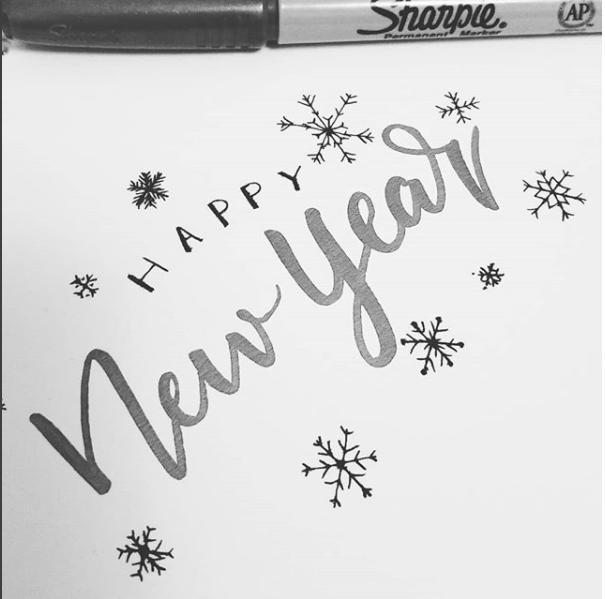 Sharpie
Sharpie.
Permanent Marker
AP
HAPPY
New Year